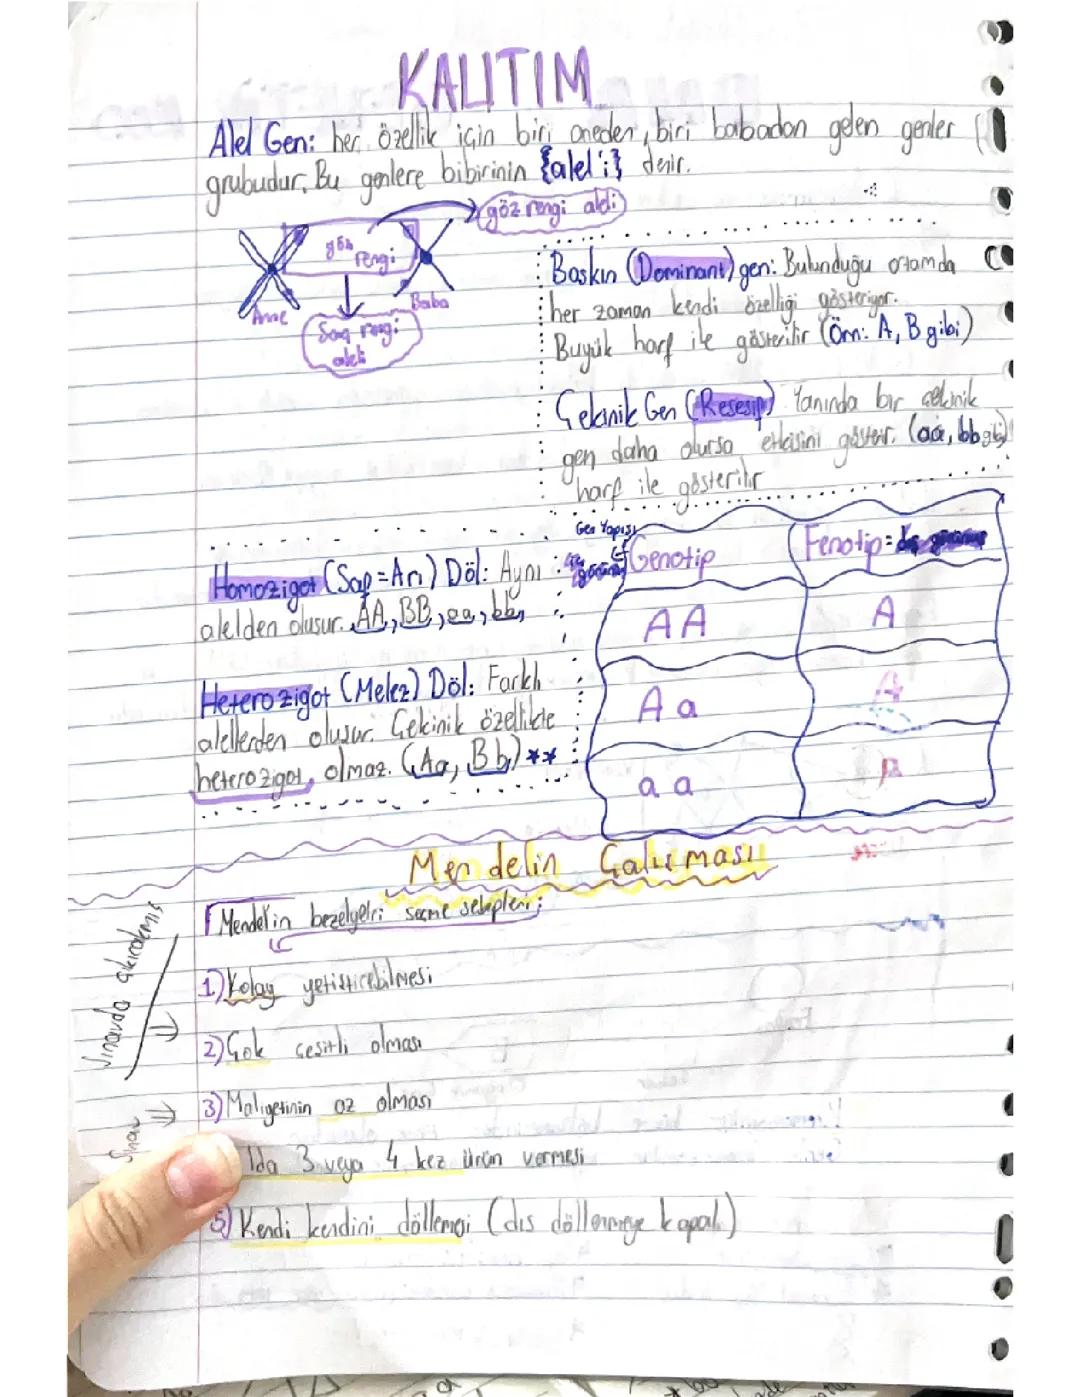 KALITIM
Alel Gen: her özellik için biri aneden, biri babadan gelen genler
grubudur. Bu genlere bibirinin {alel'i} denir.
göz rengi aleli
göz rengi
Anne
Baba
Saç rengi
aleli
Baskın (Dominant) gen: Bulunduğu ortamda
her zaman kendi özelliği gösteriyor.
Buyük harf ile gösterilir (Örn: A, B gibi)
Çekinik Gen (Resesif) Yanında bir çekinik
gen daha olursa etkisini gösterir. (aa, bb gibi)
harf ile gösterilir
Homozigot (Saf=Arı) Döl: Aynı
alelden oluşur. AA, BB, aa, bb,
Heterozigot (Melez) Döl: Farklı
alellerden oluşur. Çekinik özellikte
heterozigot olmaz. (Aa, Bb) **
Gen Yapısı
Genotip
Fenotip= dış görünüş
AA
A
Aa
A
aa
Mendelin Çalışması
Mendel'in bezelyelri seçme sebepleri;
1) Kolay yetiştirebilmesi
2) Çok çeşitli olması
3) Maliyetinin az olması
lda 3 veya 4 kez ürün vermesi
5) Kendi kendini döllemesi (dış döllenmeye kapalı)
Sınavda çıkacakmış
Sınav